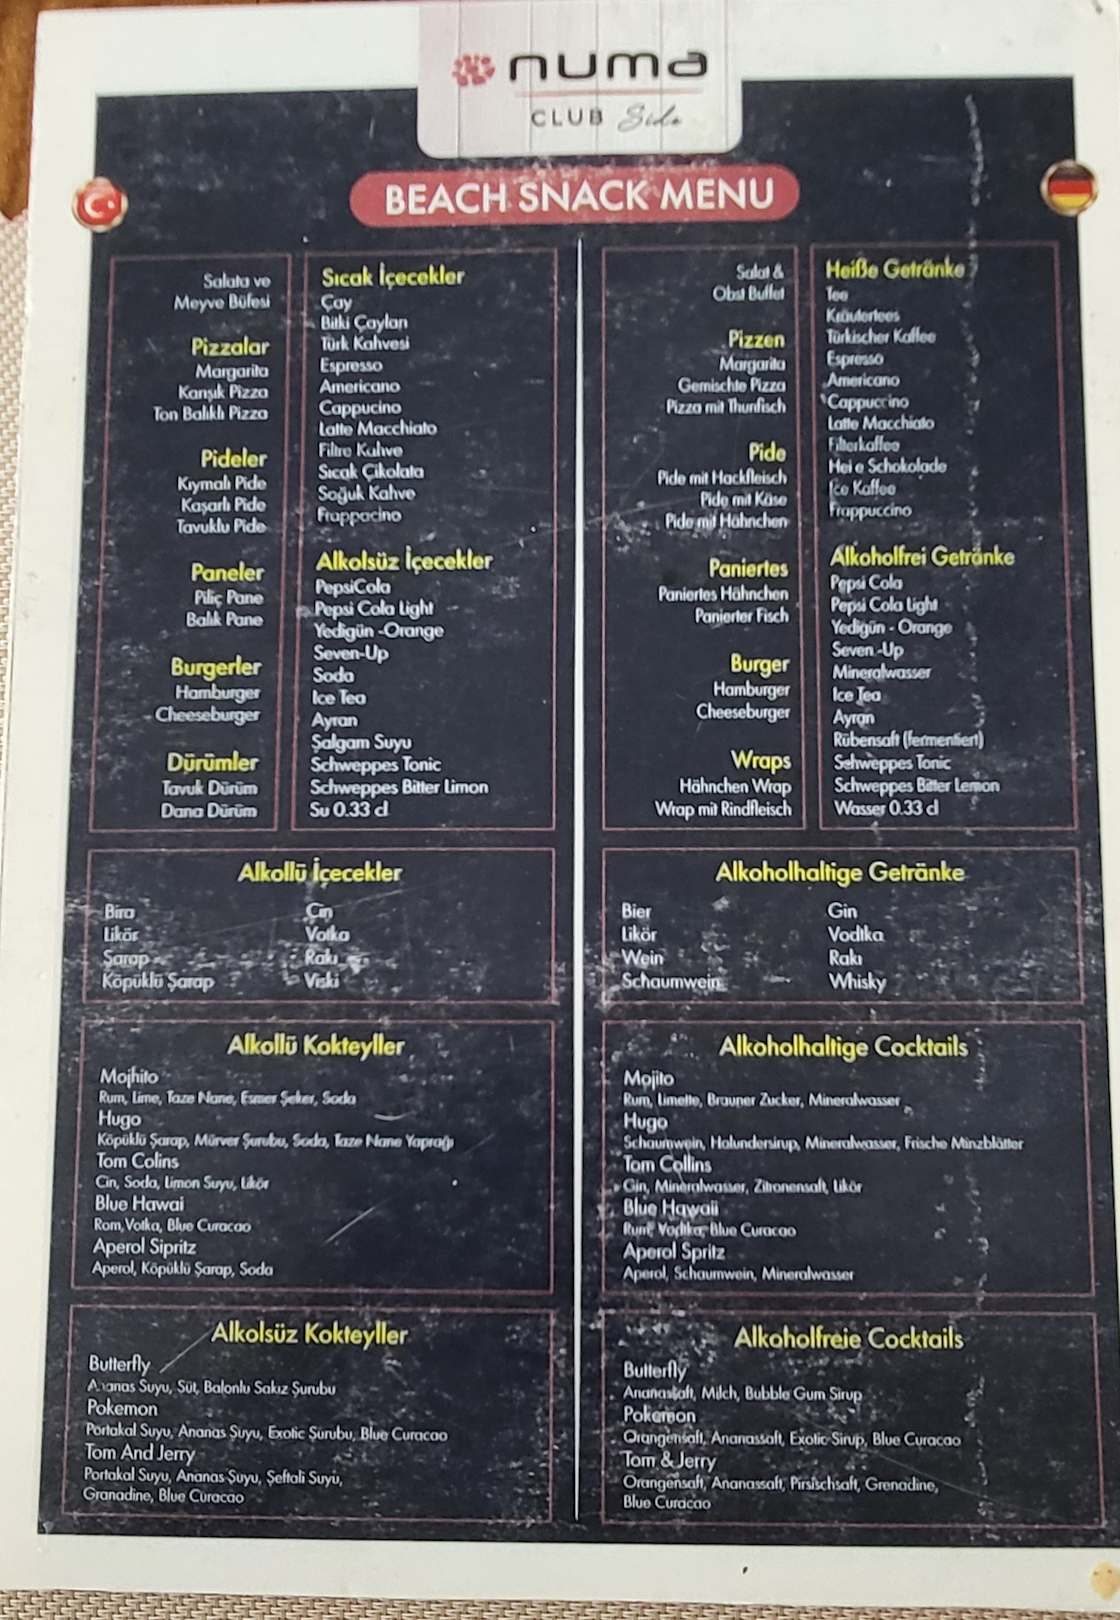 numa
CLUB Side
BEACH SNACK MENU
Salata ve
Meyve Büfesi
Pizzalar
Margarita
Karışık Pizza
Ton Balıklı Pizza
Pideler
Kıymalı Pide
Kaşarlı Pide
Tavuklu Pide
Paneler
Piliç Pane
Balık Pane
Burgerler
Hamburger
Cheeseburger
Dürümler
Tavuk Dürüm
Dana Dürüm
Sıcak İçecekler
Çay
Bitki Çayları
Türk Kahvesi
Espresso
Americano
Cappucino
Latte Macchiato
Filtre Kahve
Sıcak Çikolata
Soğuk Kahve
Frappacino
Alkolsüz İçecekler
PepsiCola
Pepsi Cola Light
Yedigün -Orange
Seven-Up
Soda
Ice Tea
Ayran
Şalgam Suyu
Schweppes Tonic
Schweppes Bitter Limon
Su 0.33 cl
Alkollü İçecekler
Bira
Likör
Şarap
Köpüklü Şarap
Çin
Votka
Rakı
Viski
Alkollü Kokteyller
Mojhito
Rum, Lime, Taze Nane, Esmer Şeker, Soda
Hugo
Köpüklü Şarap, Mürver Şurubu, Soda, Taze Nane Yaprağı
Tom Colins
Cin, Soda, Limon Suyu, Likör
Blue Hawai
Rom, Votka, Blue Curacao
Aperol Sipritz
Aperol, Köpüklü Şarap, Soda
Alkolsüz Kokteyller
Butterfly
Ananas Suyu, Süt, Balonlu Sakız Şurubu
Pokemon
Portakal Suyu, Ananas Suyu, Exotic Şurubu, Blue Curacao
Tom And Jerry
Portakal Suyu, Ananas Suyu, Şeftali Suyu,
Granadine, Blue Curacao
Salat &
Obst Buffet
Pizzen
Margarita
Gemischte Pizza
Pizza mit Thunfisch
Pide
Pide mit Hackfleisch
Pide mit Käse
Pide mit Hähnchen
Paniertes
Paniertes Hähnchen
Panierter Fisch
Burger
Hamburger
Cheeseburger
Wraps
Hähnchen Wrap
Wrap mit Rindfleisch
Heiße Getränke
Tee
Kräutertees
Türkischer Kaffee
Espresso
Americano
Cappuccino
Latte Macchiato
Filterkaffee
Hei e Schokolade
Ice Kaffee
Frappuccino
Alkoholfrei Getränke
Pepsi Cola
Pepsi Cola Light
Yedigün - Orange
Seven -Up
Mineralwasser
Ice Tea
Ayran
Rübensaft (fermentiert)
Schweppes Tonic
Schweppes Bitter Lemon
Wasser 0.33 cl
Alkoholhaltige Getränke
Bier
Likör
Wein
Schaumwein
Gin
Vodtka
Rakı
Whisky
Alkoholhaltige Cocktails
Mojito
Rum, Limette, Brauner Zucker, Mineralwasser
Hugo
Schaumwein, Holundersirup, Mineralwasser, Frische Minzblätter
Tom Collins
Gin, Mineralwasser, Zitronensaft, Likör
Blue Hawaii
Rum, Vodtka, Blue Curacao
Aperol Spritz
Aperol, Schaumwein, Mineralwasser
Alkoholfreie Cocktails
Butterfly
Ananassaft, Milch, Bubble Gum Sirup
Pokemon
Orangensaft, Ananassaft, Exotic Sirup, Blue Curacao
Tom & Jerry
Orangensaft, Ananassaft, Pirsischsaft, Grenadine,
Blue Curacao